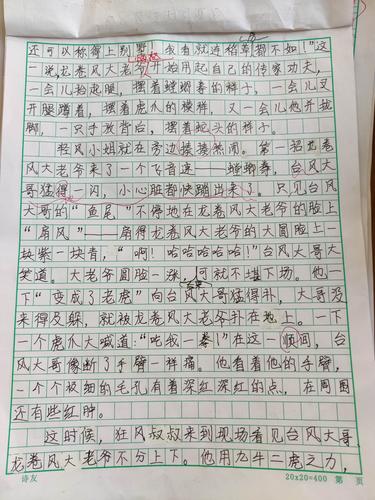 还可以称得上别墅！我看就连稻草都不如！”这
一说龙卷风大老爷开始用起自己的传家功夫，
一会儿抬起腿，摆着螳螂拳的样子，一会儿叉
开腿蹲着，摆着虎爪的模样，又一会儿他并拢
脚，一只手放背后，摆着蛇头的样子。
轻风小姐就在旁边揍揍热闹。第一招龙卷
风大老爷来了一个飞音速——螳螂拳，台风大
哥猛得一闪，小心脏都快蹦出来了。只见台风
大哥的“鱼尾”不停地在龙卷风大老爷的脸上
“扇风”——扇得龙卷风大老爷的大圆脸上一
块紫一块青，“啊！哈哈哈哈哈！”台风大哥大
笑道。大老爷圆脸一涨，可就不堪下场。他一
下“变成了老虎”向台风大哥猛得补，大哥没
来得及躲，就被龙卷风大老爷扑在地上。一下
一个虎爪大喊道：“吃我一拳！”在这一顺间，台
风大哥像断了手臂一样痛。他看着他的手臂，
一个个被细的毛孔有着深红深红的点，在周围
还有些红肿。
这时候，狂风叔叔来到现场看见台风大哥、
龙卷风大老爷不分上下。他用九牛二虎之力，
诗友 20×20=400 第 页